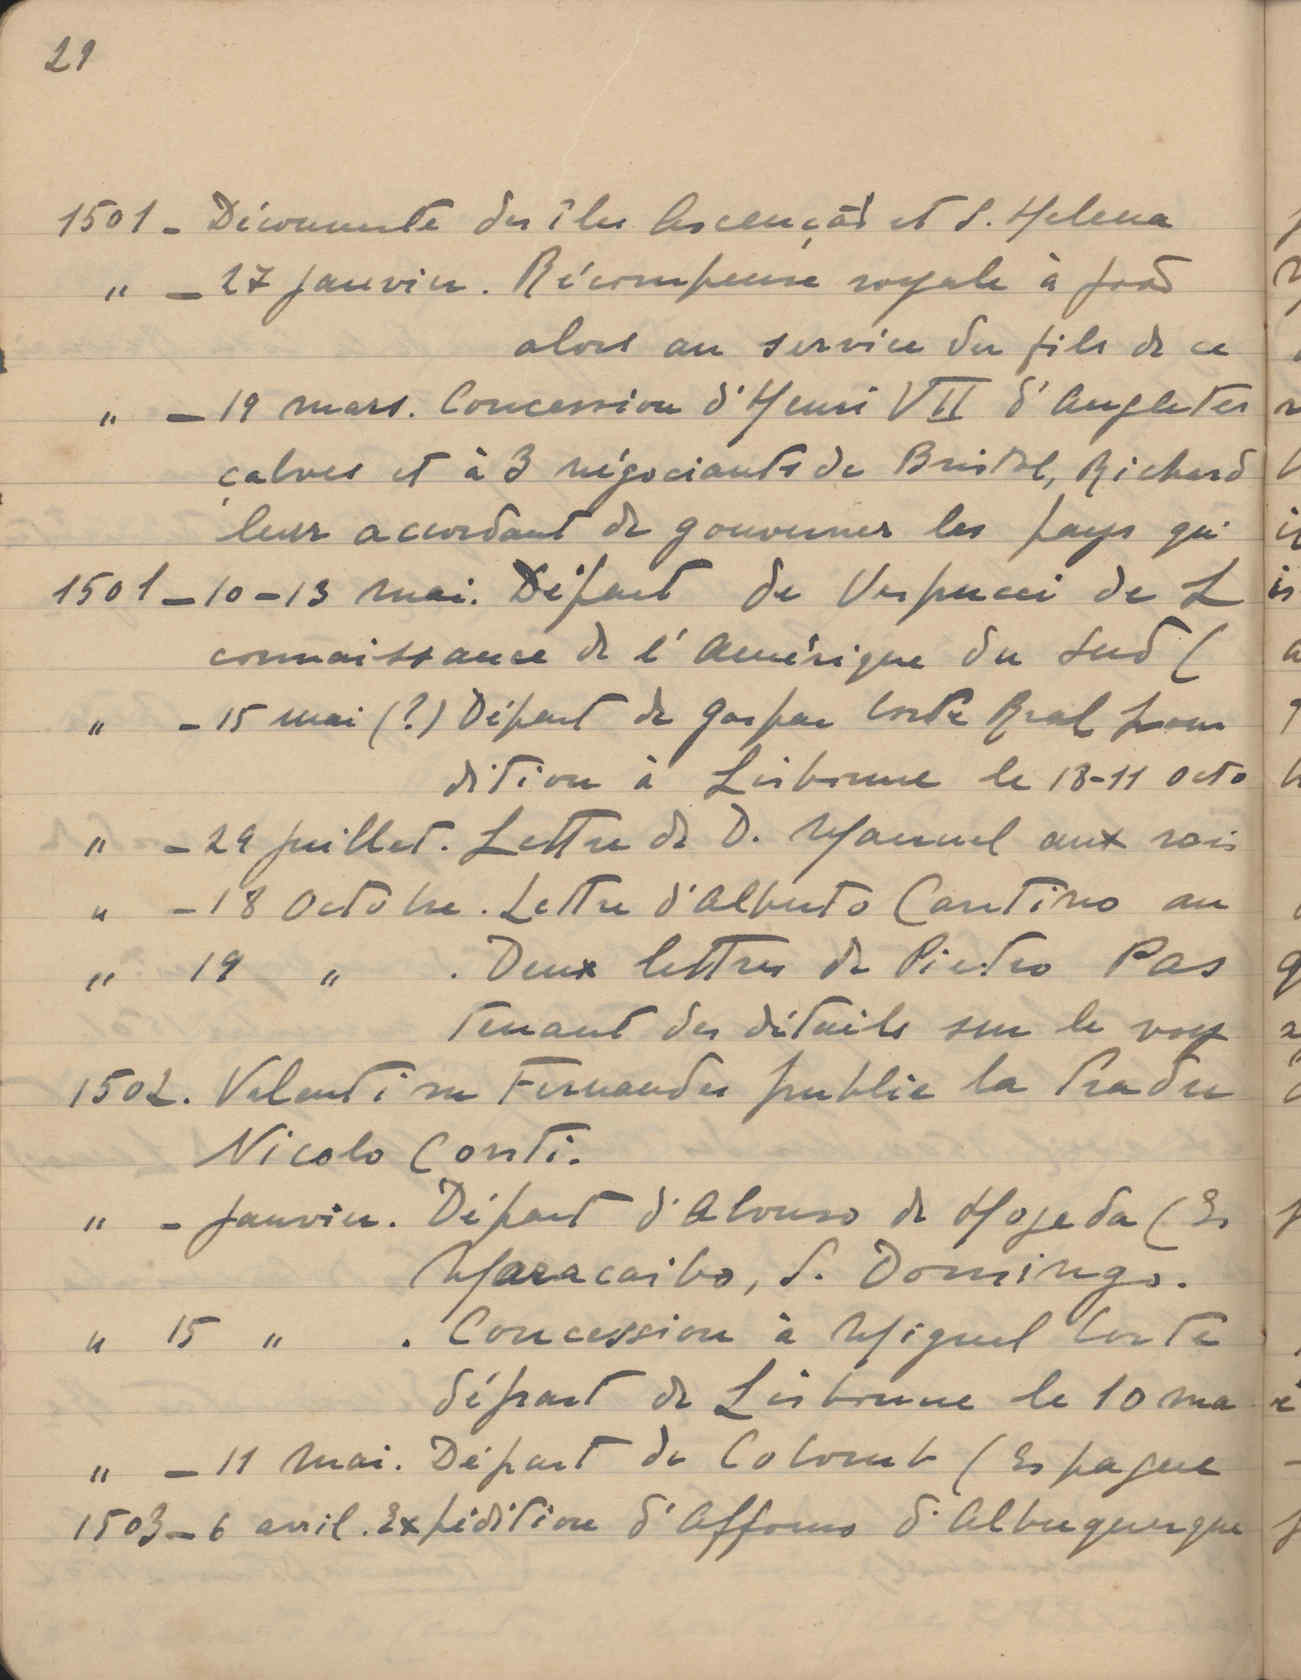 29
1501 - Découverte des îles Ascenção et S. Helena
" - 27 janvier. Récompense royale à João
alors au service du fils de ce
" - 19 mars. Concession d'Henri VII d'Angleter
çalves et à 3 négociants de Bristol, Richard
leur accordant de gouverner les pays qu'
1501 - 10-13 mai. Départ de Vespucci de L
connaissance de l'Amérique du Sud (
" - 15 mai (?) Départ de Gaspar Corte Real pour
dition à Lisbonne le 18-11 octo
" - 29 juillet. Lettre de D. Manuel aux rois
" - 18 Octobre. Lettre d'Alberto Cantino au
" 19 " . Deux lettres de Pietro Pas
tenant des détails sur le voy
1502. Valentim Fernandes publie la tradu
Nicolo Conti.
" - janvier. Départ d'Alonso de Hojeda (Es
Maracaibo, S. Domingo.
" 15 " . Concession à Miguel Corte
départ de Lisbonne le 10 ma
" - 11 mai. Départ de Colomb (Espagne
1503 - 6 avril. Expédition d'Affonso d'Albuquerque